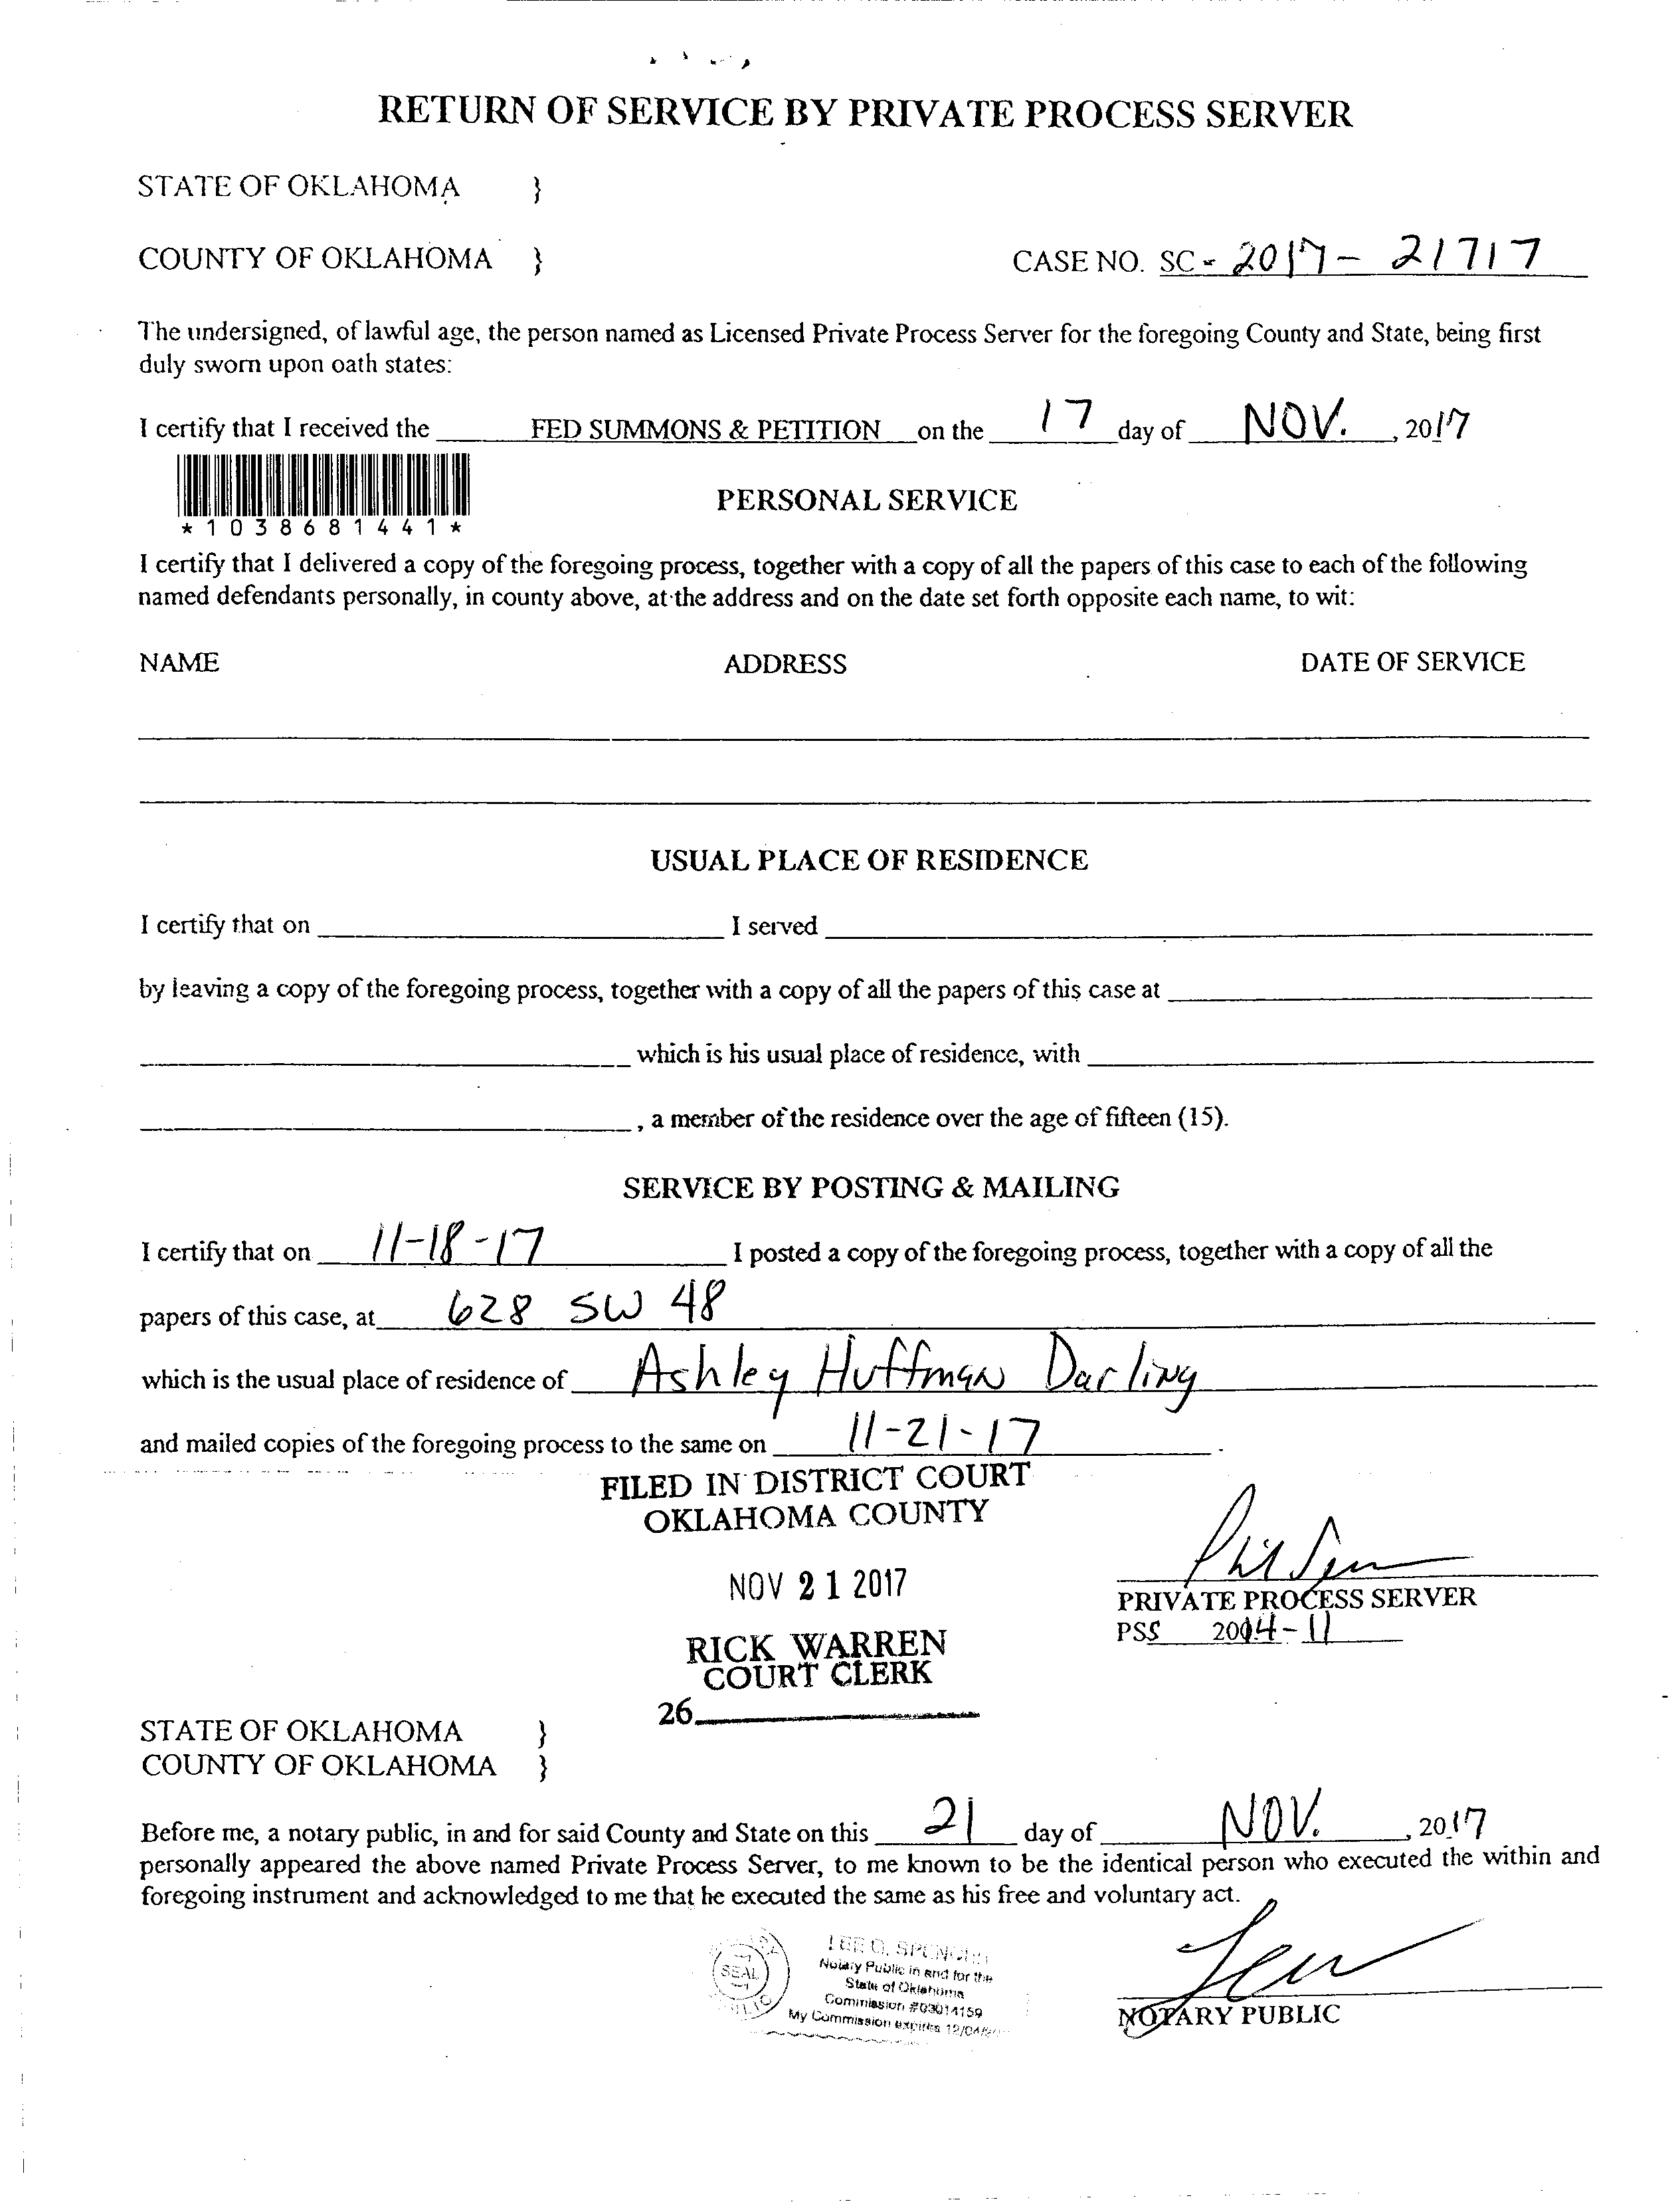 RETURN OF SERVICE BY PRIVATE PROCESS SERVER
STATE OF OKLAHOMA }
COUNTY OF OKLAHOMA } CASE NO. SC - 2017 - 21717
The undersigned, of lawful age, the person named as Licensed Private Process Server for the foregoing County and State, being first
duly sworn upon oath states:
I certify that I received the FED SUMMONS & PETITION on the 17 day of NOV. , 2017
*1038681441*
PERSONAL SERVICE
I certify that I delivered a copy of the foregoing process, together with a copy of all the papers of this case to each of the following
named defendants personally, in county above, at the address and on the date set forth opposite each name, to wit:
NAME ADDRESS DATE OF SERVICE
USUAL PLACE OF RESIDENCE
I certify that on I served
by leaving a copy of the foregoing process, together with a copy of all the papers of this case at
which is his usual place of residence, with
, a member of the residence over the age of fifteen (15).
SERVICE BY POSTING & MAILING
I certify that on 11-18-17 I posted a copy of the foregoing process, together with a copy of all the
papers of this case, at 628 SW 48
which is the usual place of residence of Ashley Huffman Darling
and mailed copies of the foregoing process to the same on 11-21-17 .
FILED IN DISTRICT COURT
OKLAHOMA COUNTY
NOV 21 2017
RICK WARREN
COURT CLERK
26
PRIVATE PROCESS SERVER
PSS 2004-11
STATE OF OKLAHOMA }
COUNTY OF OKLAHOMA }
Before me, a notary public, in and for said County and State on this 21 day of NOV. , 2017
personally appeared the above named Private Process Server, to me known to be the identical person who executed the within and
foregoing instrument and acknowledged to me that he executed the same as his free and voluntary act.
SEAL
Notary Public in and for the
State of Oklahoma
Commission #03014159
My Commission expires
NOTARY PUBLIC